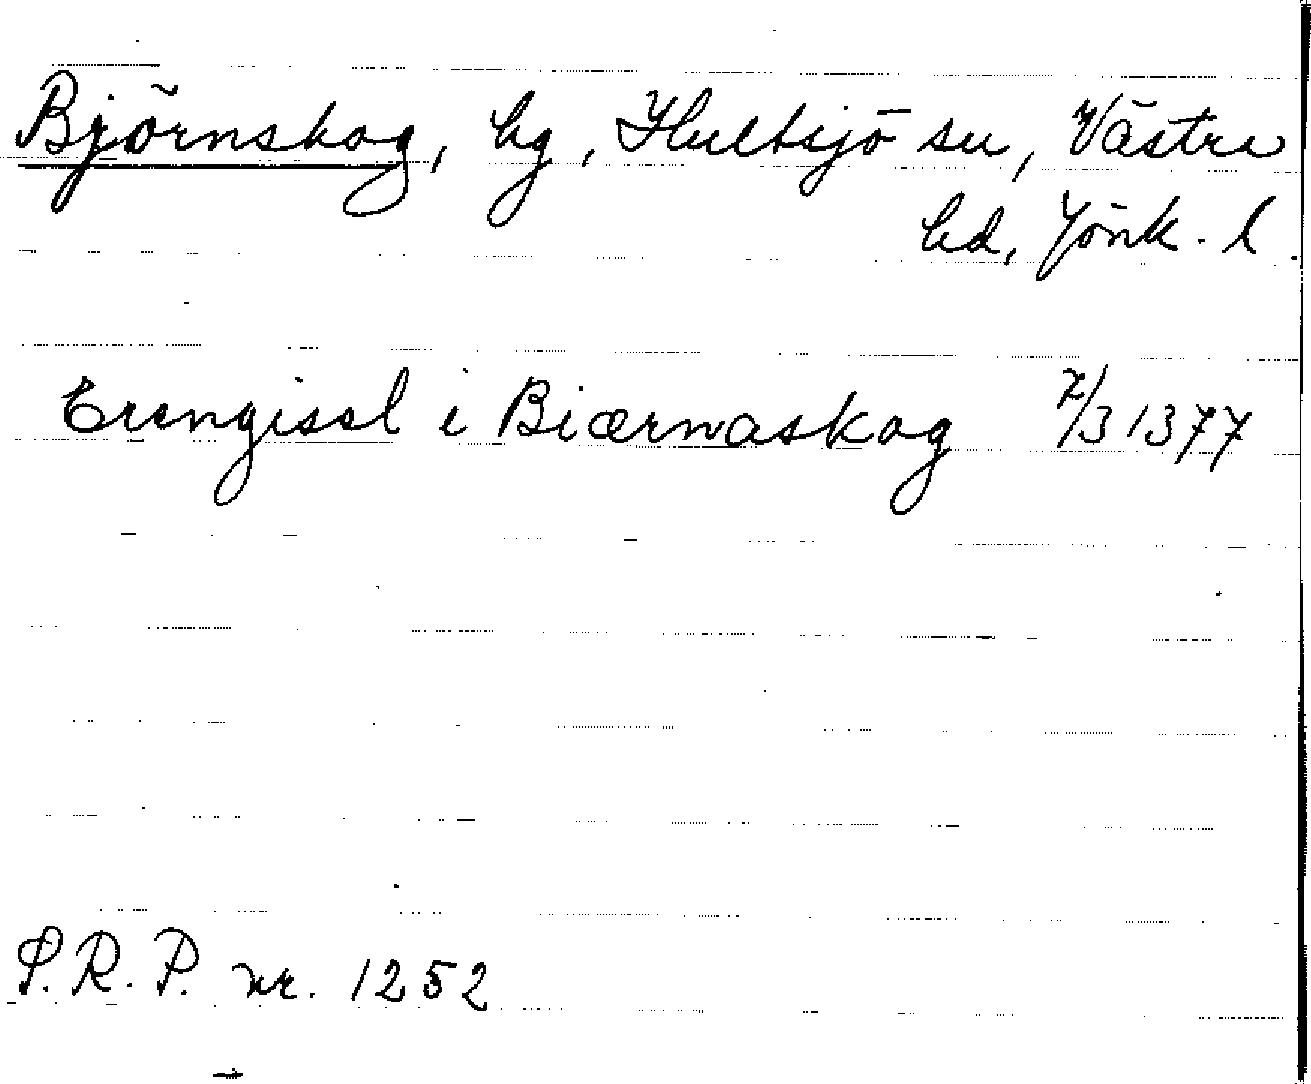 Björnskog, hg, Hultsjö sn, Västra
hd, Jönk. l.
Erengisel i Biærnaskog 7/3 1377
S.R.P. nr. 1252